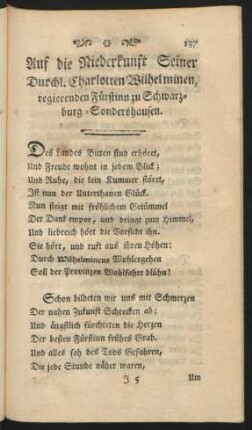 137
Auf die Niederkunft Seiner
Durchl. Charlotten Wilhelminen,
regierenden Fürstinn zu Schwarz-
burg-Sondershausen.
Des Landes Bitten sind erhöret,
Und Freude wohnt in jedem Blick;
Und Ruhe, die kein Kummer störet,
Ist nun der Unterthanen Glück.
Nun steigt mit fröhlichem Getümmel
Der Dank empor, und dringt zum Himmel,
Und liebreich hört die Vorsicht ihn.
Sie hört, und ruft aus ihren Höhen:
Durch Wilhelminens Wohlergehen
Soll der Provinzen Wohlfahrt blühn!
Schon bildeten wir uns mit Schmerzen
Der nahen Zukunft Schrecken ab;
Und ängstlich fürchteten die Herzen
Der besten Fürstinn frühes Grab.
Und alles sah des Tods Gefahren,
Die jede Stunde näher waren,
J 5 Um